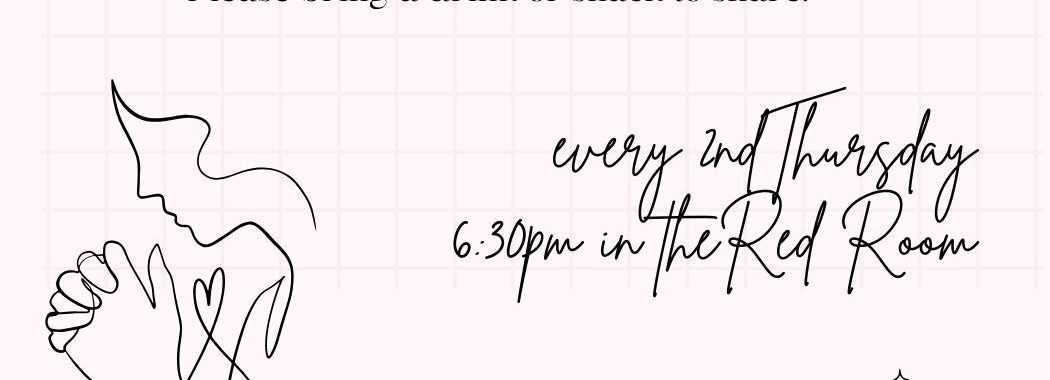 Please bring a drink or snack to share.
every 2nd Thursday
6:30pm in the Red Room